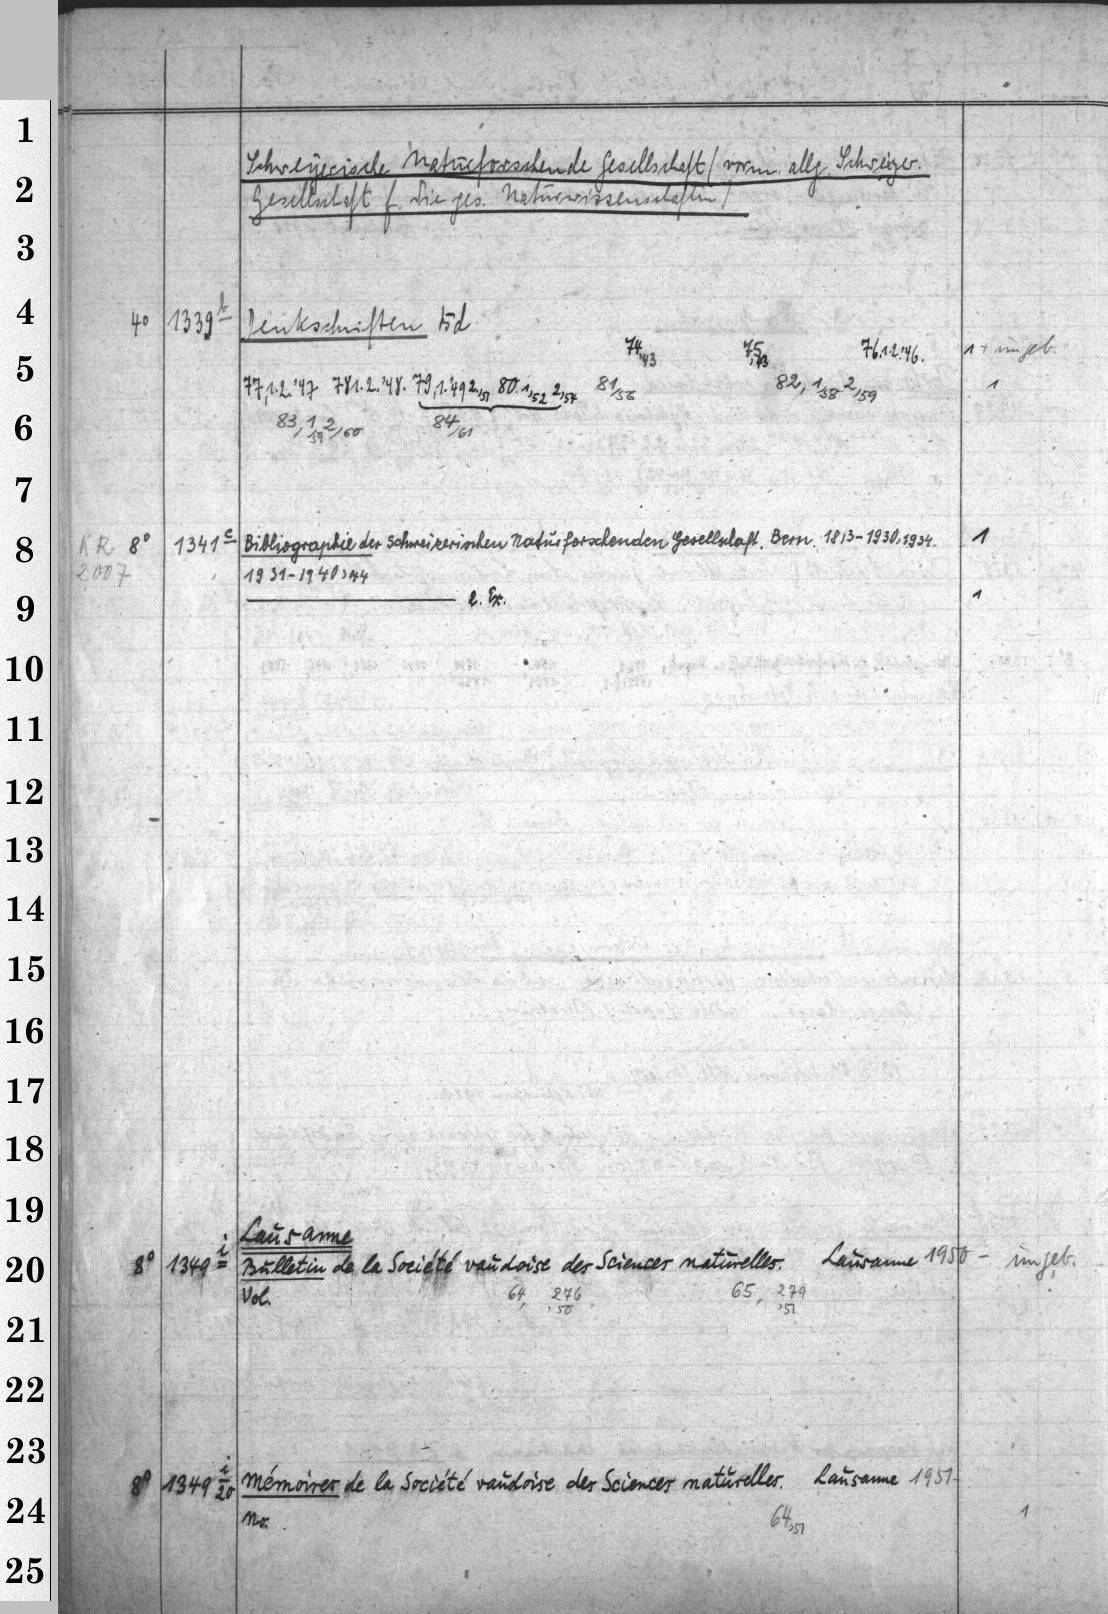 1
2
3
4
5
6
7
8
9
10
11
12
13
14
15
16
17
18
19
20
21
22
23
24
25
Schweizerische Naturforschende Gesellschaft (vorm. allg. Schweizer.
Gesellschaft f. die ges. Naturwissenschaften)
4° 1339 b Denkschriften Bd
74,43 75,43 76,1.2.'46. 1 + ungeb.
77,1.2.'47 78 1.2.'48. 79,1.'49 2,51 80.1,52 2,54 81/56 82, 1/58 2/59 1
83, 1/59 2/60 84/61
KR 8° 1341 c Bibliographie der Schweizerischen Naturforschenden Gesellschaft. Bern. 1813-1930,1934. 1
2007 1931-1940,44
2. Ex. 1
Lausanne
8° 1349 i Bulletin de la Société vaudoise des Sciences naturelles. Lausanne 1950 - ungeb.
Vol. 64, 276,50 65, 279,51
8° 1349 i/20 Mémoires de la Société vaudoise des Sciences naturelles. Lausanne 1951-
No. 64,51 1